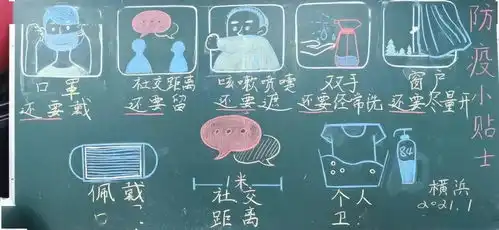 防疫小贴士
口罩
还要戴
社交距离
还要留
咳嗽喷嚏
还要遮
双手
还要经常洗
窗户
还要尽量开
佩戴
口
米
社交
距离
84
个人
卫
橫浜
2021.1